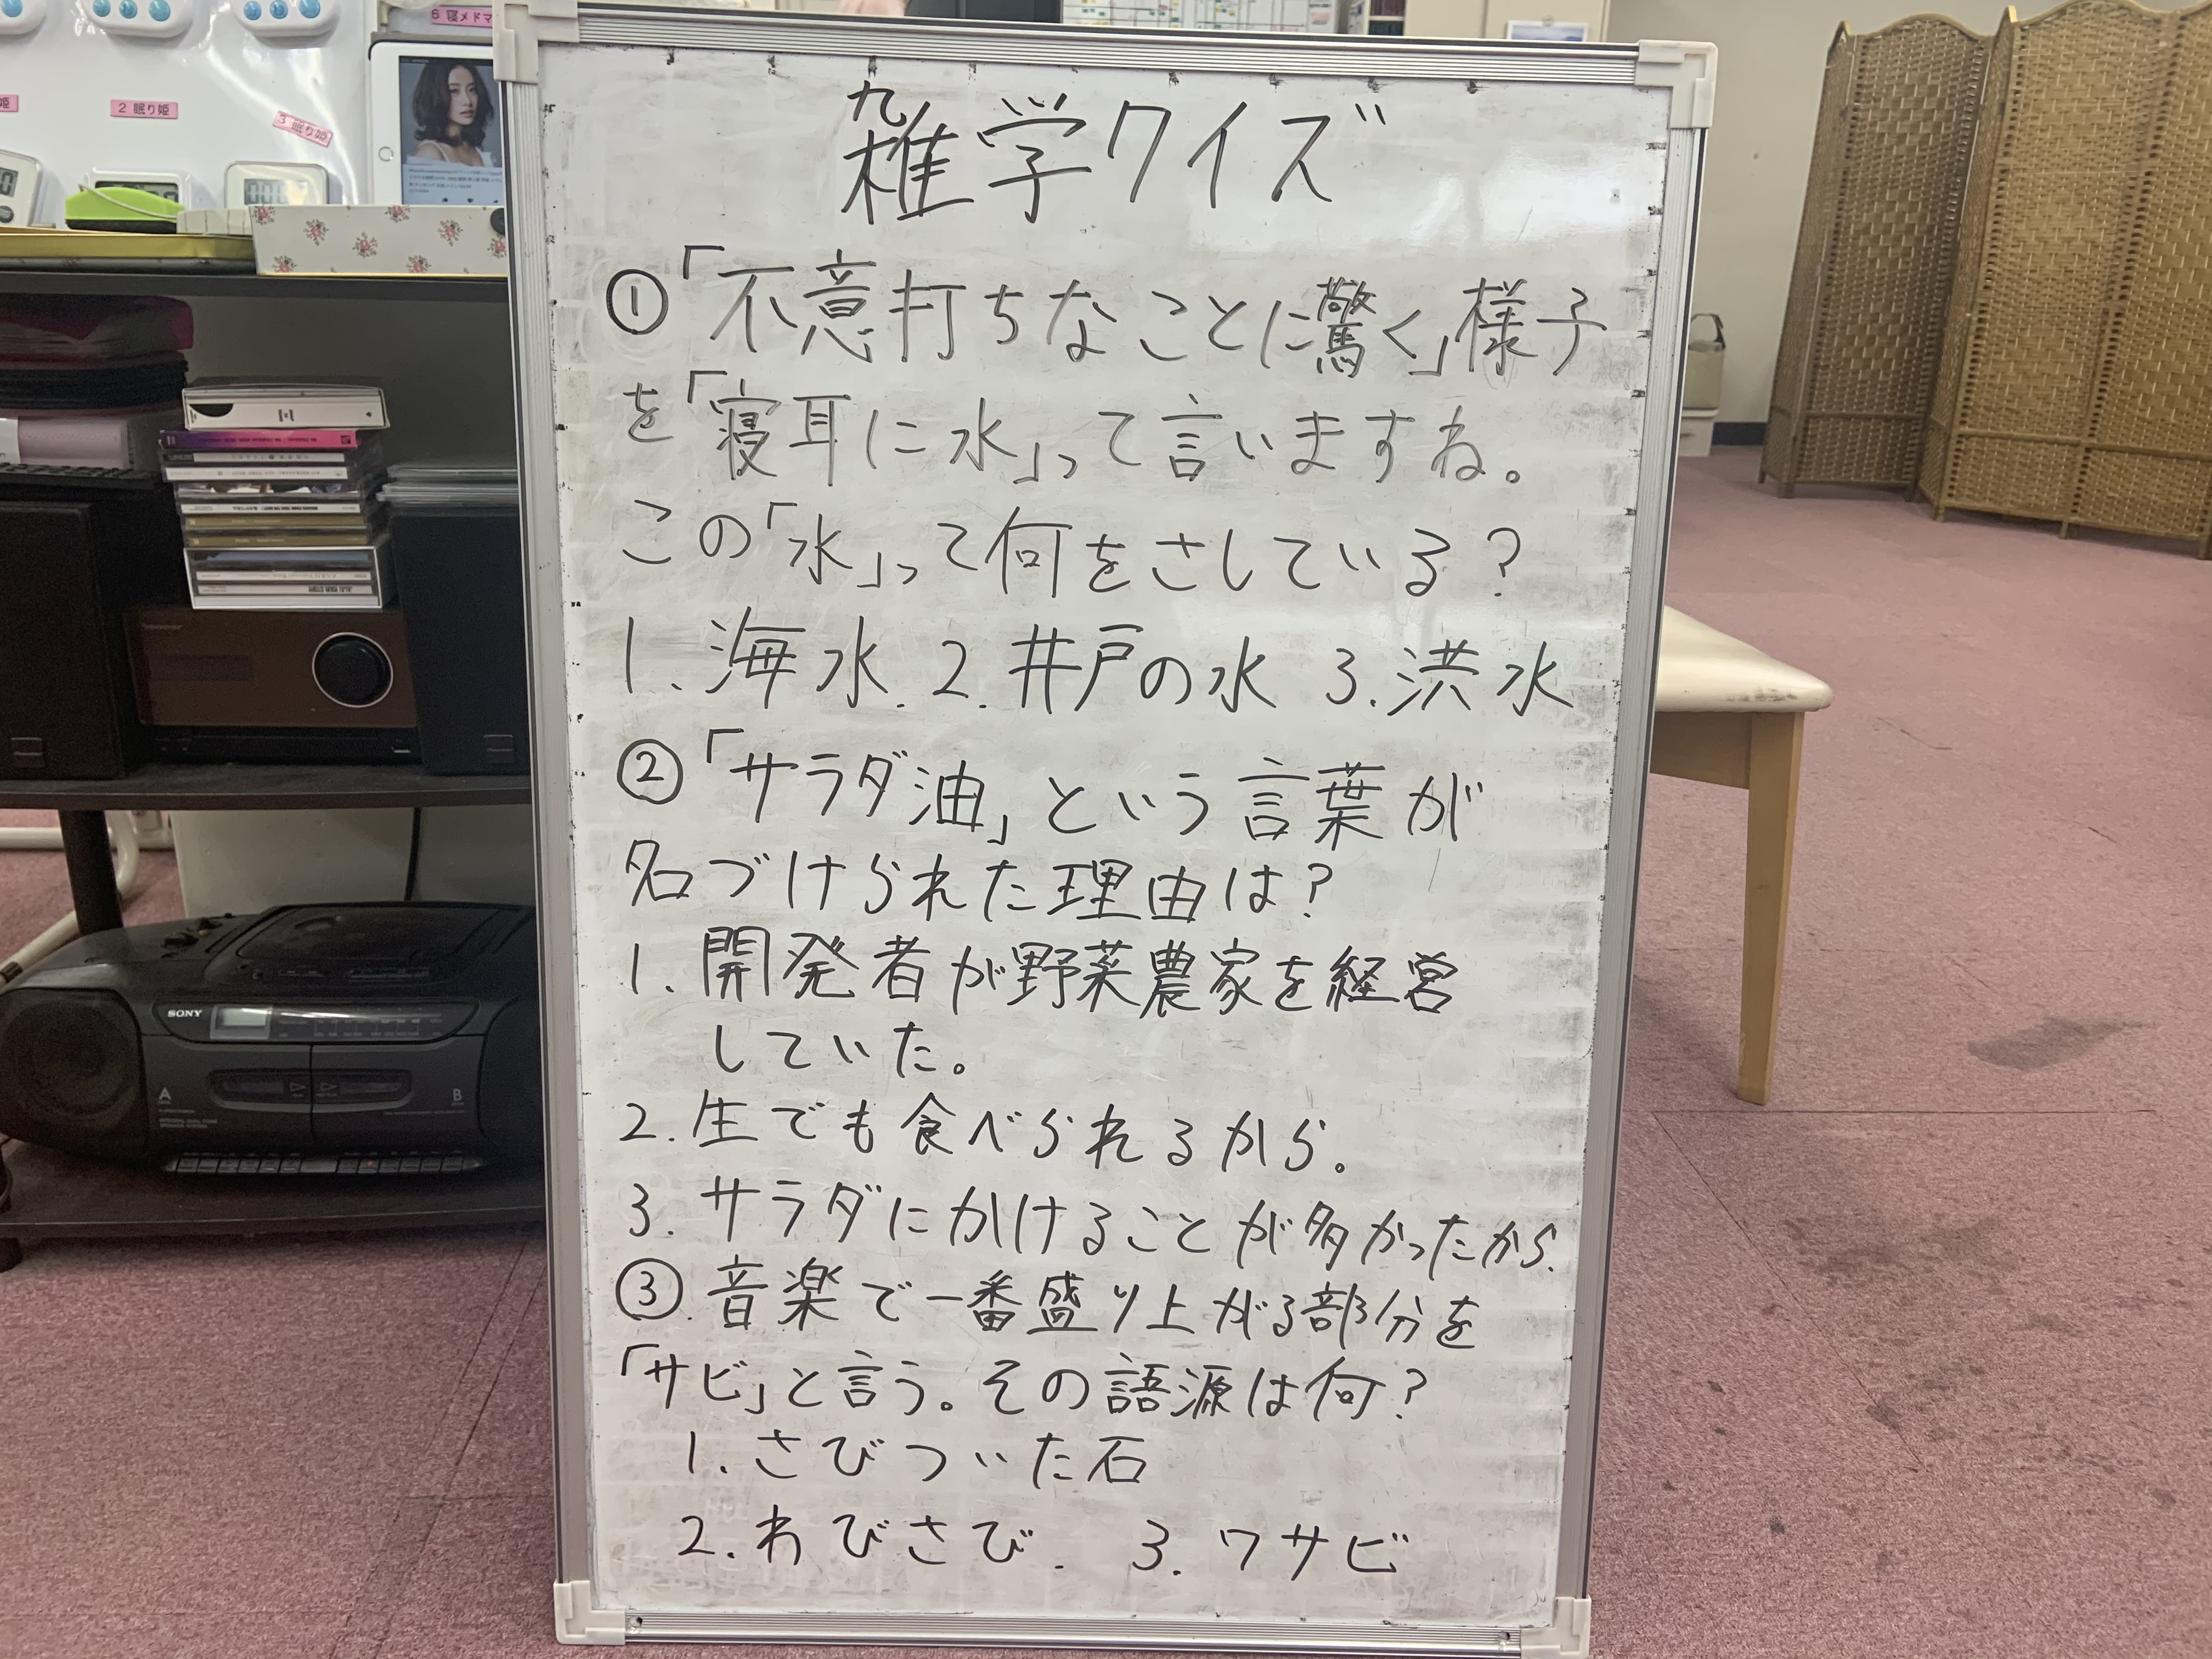 6 寝メドマ
2 眠り姫
3 眠り姫
姫
雑学クイズ
①「不意打ちなことに驚く」様子
を「寝耳に水」って言いますね。
この「水」って何をさしている?
1. 海水. 2. 井戸の水 3. 洪水
②「サラダ油」という言葉が
名づけられた理由は?
1. 開発者が野菜農家を経営
していた。
2. 生でも食べられるから。
3. サラダにかけることが多かったから.
③ 音楽で一番盛り上がる部分を
「サビ」と言う。その語源は何?
1. さびついた石
2. わびさび. 3. ワサビ
SONY
A
B